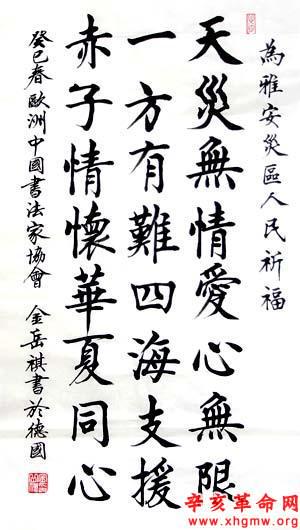 為雅安災區人民祈福
天災無情愛心無限
一方有難四海支援
赤子情懷華夏同心
癸巳春歐洲中國書法家協會 金岳祺書於德國
辛亥革命网
www.xhgmw.org